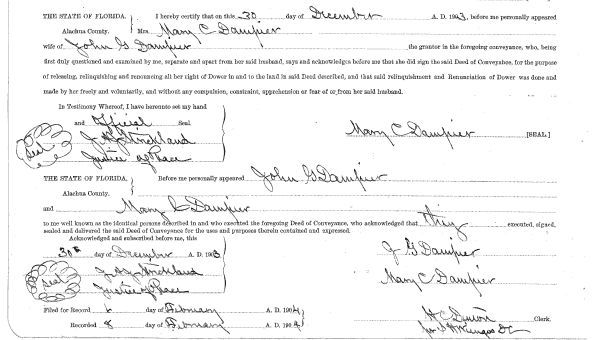 THE STATE OF FLORIDA, I hereby certify that on this 30 day of December A. D. 1903, before me personally appeared
Alachua County. Mrs Mary C Dampier
wife of John G Dampier the grantor in the foregoing conveyance, who, being
first duly questioned and examined by me, separate and apart from her said husband, says and acknowledges before me that she did sign the said Deed of Conveyance, for the purpose
of releasing, relinquishing and renouncing all her right of Dower in and to the land in said Deed described, and that said relinquishment and Renunciation of Dower was done and
made by her freely and voluntarily, and without any compulsion, constraint, apprehension or fear of or from her said husband.
In Testimony Whereof, I have hereunto set my hand
and Official Seal.
Seal Strickland Mary C Dampier [SEAL]
Justice of Peace
THE STATE OF FLORIDA, Before me personally appeared John G Dampier
Alachua County.
and Mary C Dampier
to me well known as the identical persons described in and who executed the foregoing Deed of Conveyance, who acknowledged that they executed, signed,
sealed and delivered the said Deed of Conveyance for the uses and purposes therein contained and expressed.
Acknowledged and subscribed before me, this
30th day of December A. D. 1903 J G Dampier
Seal Strickland Mary C Dampier
Justice of Peace
Filed for Record 6 day of February A. D. 1904 Clerk.
Recorded 8 day of February A. D. 1904 D C